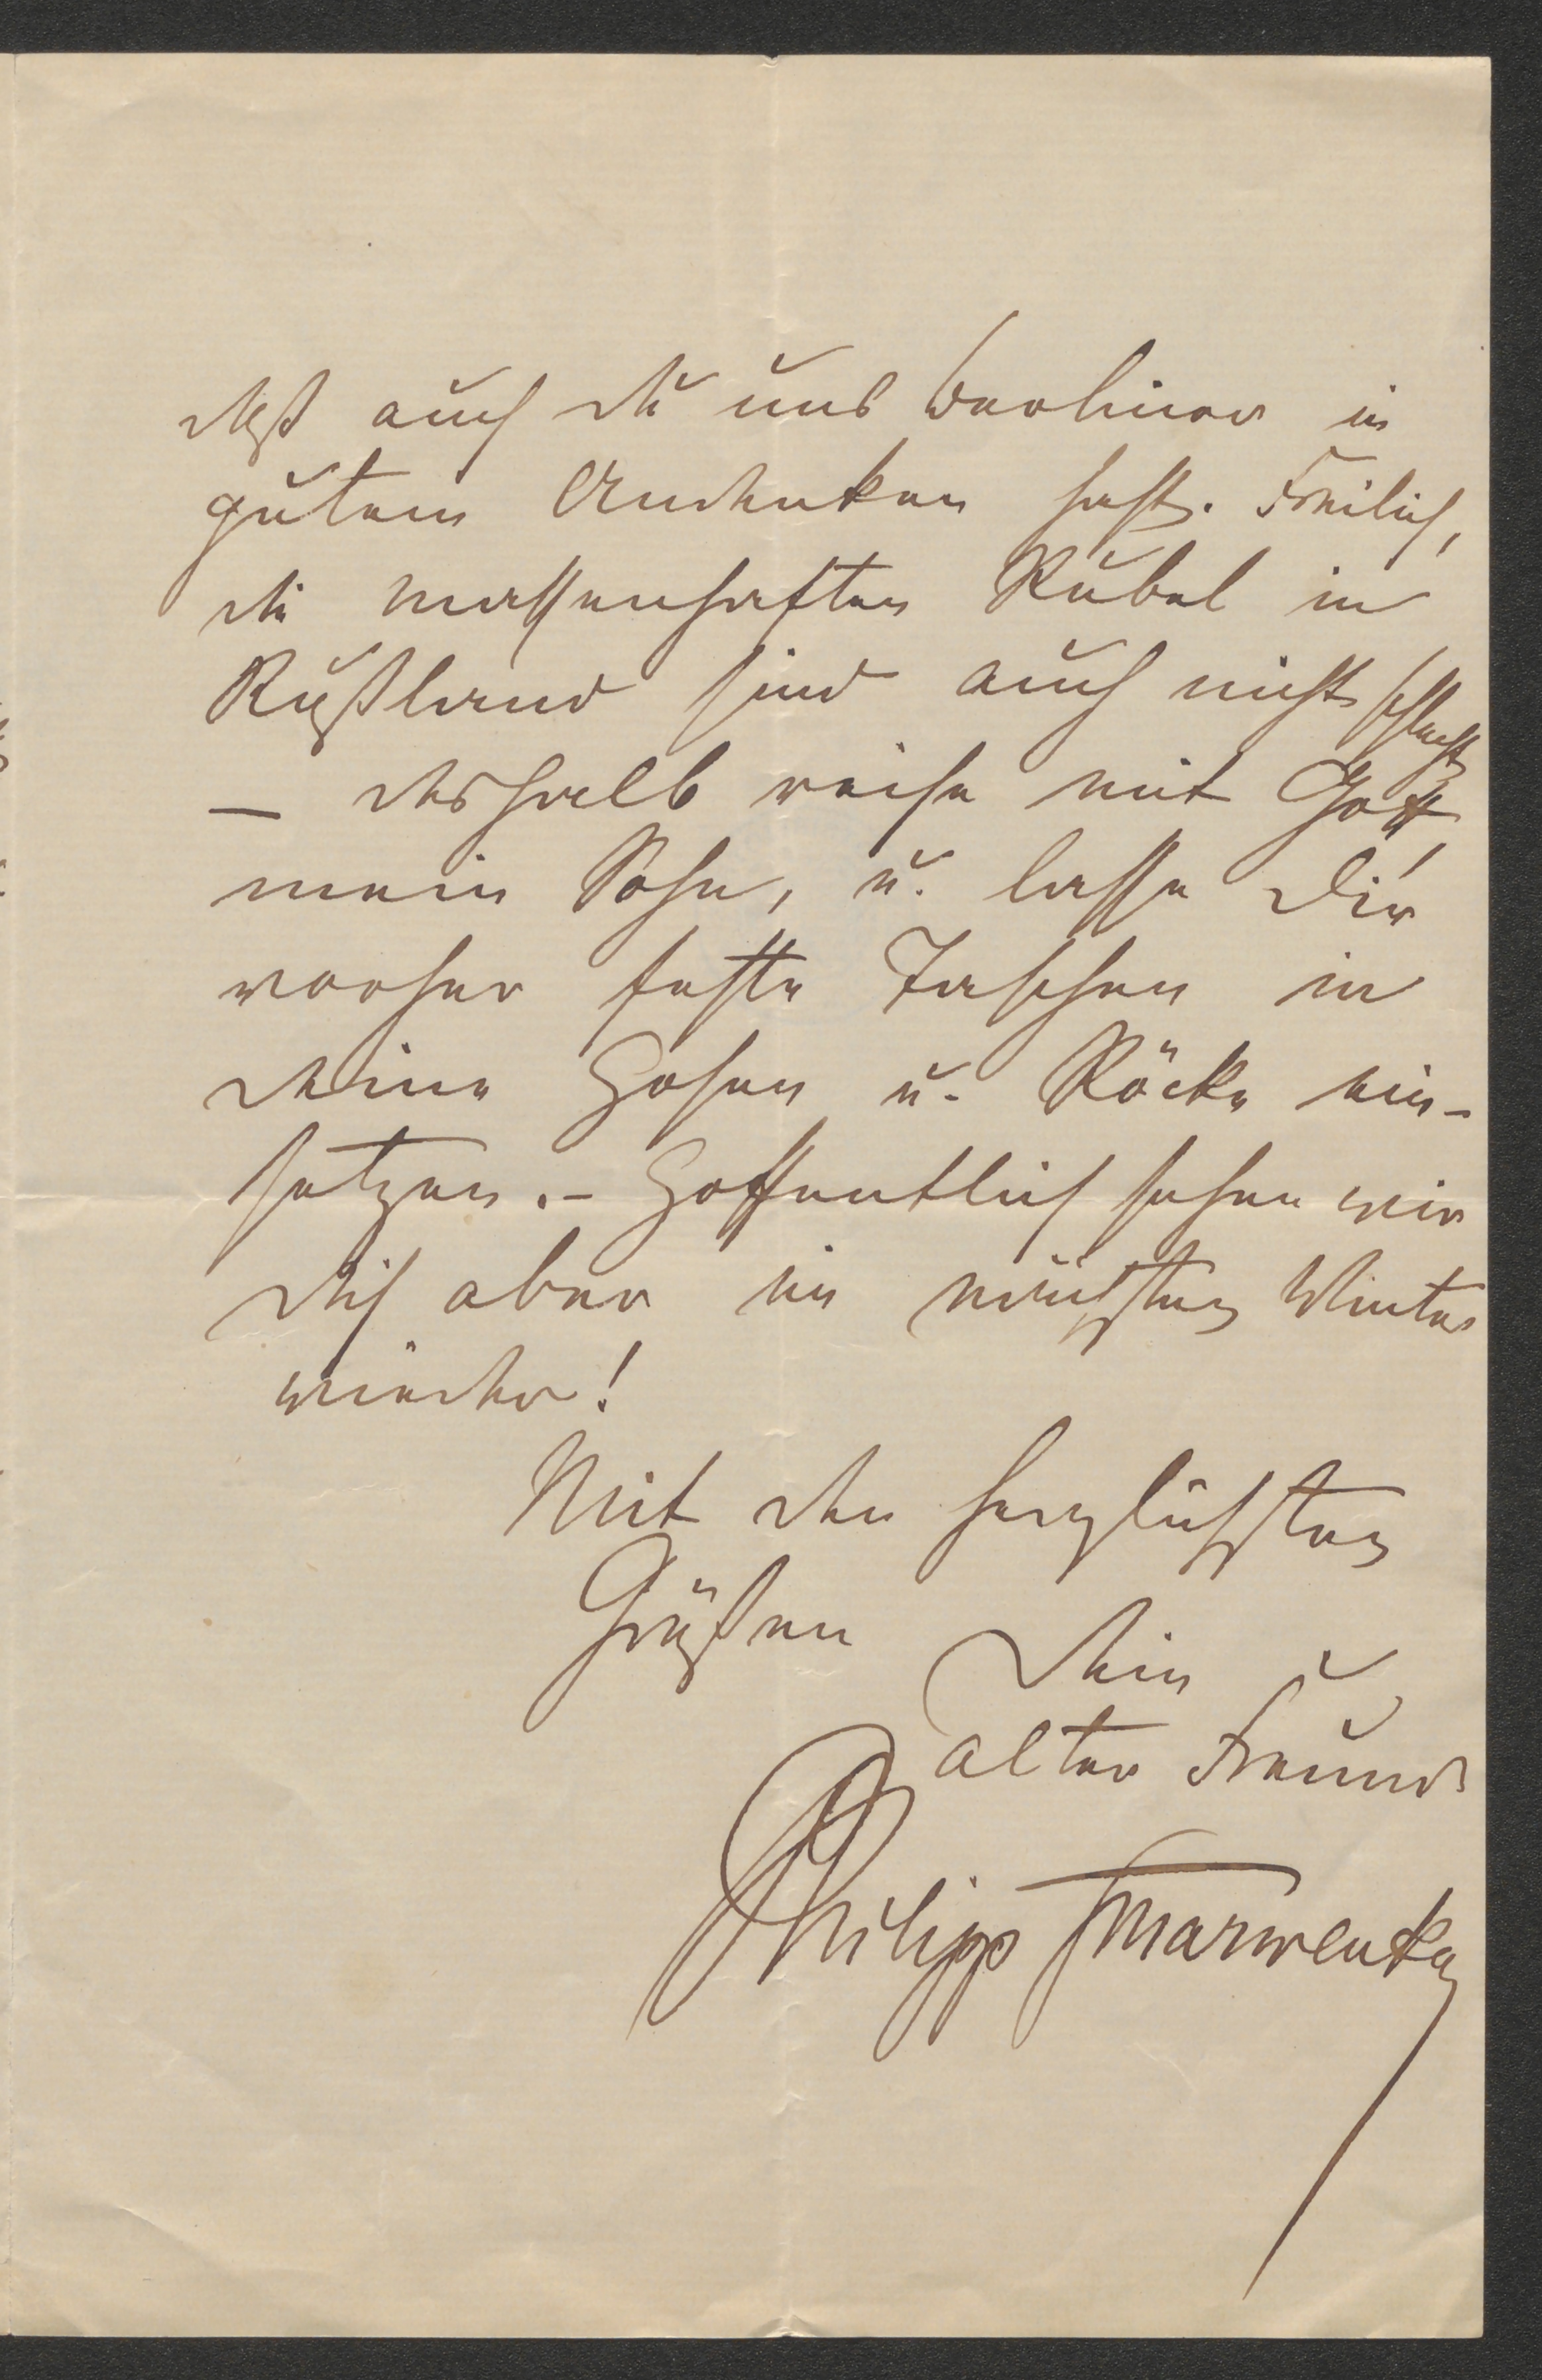 daß auch Du uns Berliner in
gutem Andenken hast. Freilich,
die massenhaften Rubel in
Rußland sind auch nicht schlecht
— deshalb reise mit Gott
mein Sohn, u. lasse Dir
vorher feste Taschen in
Deine Hosen u. Röcke ein-
setzen. – Hoffentlich sehen wir
Dich aber im nächsten Winter
wieder!
Mit den herzlichsten
Grüßen
Dein
alter Freund
Philipp Scharwenka